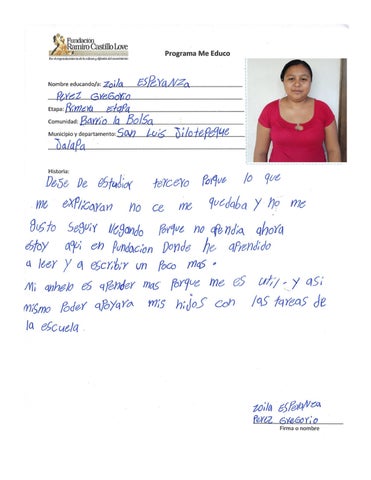 Fundación
Ramiro Castillo Love
Programa Me Educo
Nombre educando/a: Zoila ESPERANZA
PEREZ GREGORIO
Etapa: Primera etapa
Comunidad: Barrio la Bolsa
Municipio y departamento: SAN LUIS Jilotepeque
Jalapa
Historia:
Deje De estudior tercero Porque lo que
me explicaran no ce me quedaba y no me
gusto seguir llegando Porque no aprendia ahora
estoy aqui en Fundacion Donde he aprendido
a leer y a escribir un Poco mas.
Mi anhelo es aprender mas Porque me es util. y asi
mismo Poder apoyara mis hijos con las tareas de
la escuela.
Zoila ESPERANZA
PEREZ GREGORIO
Firma o nombre